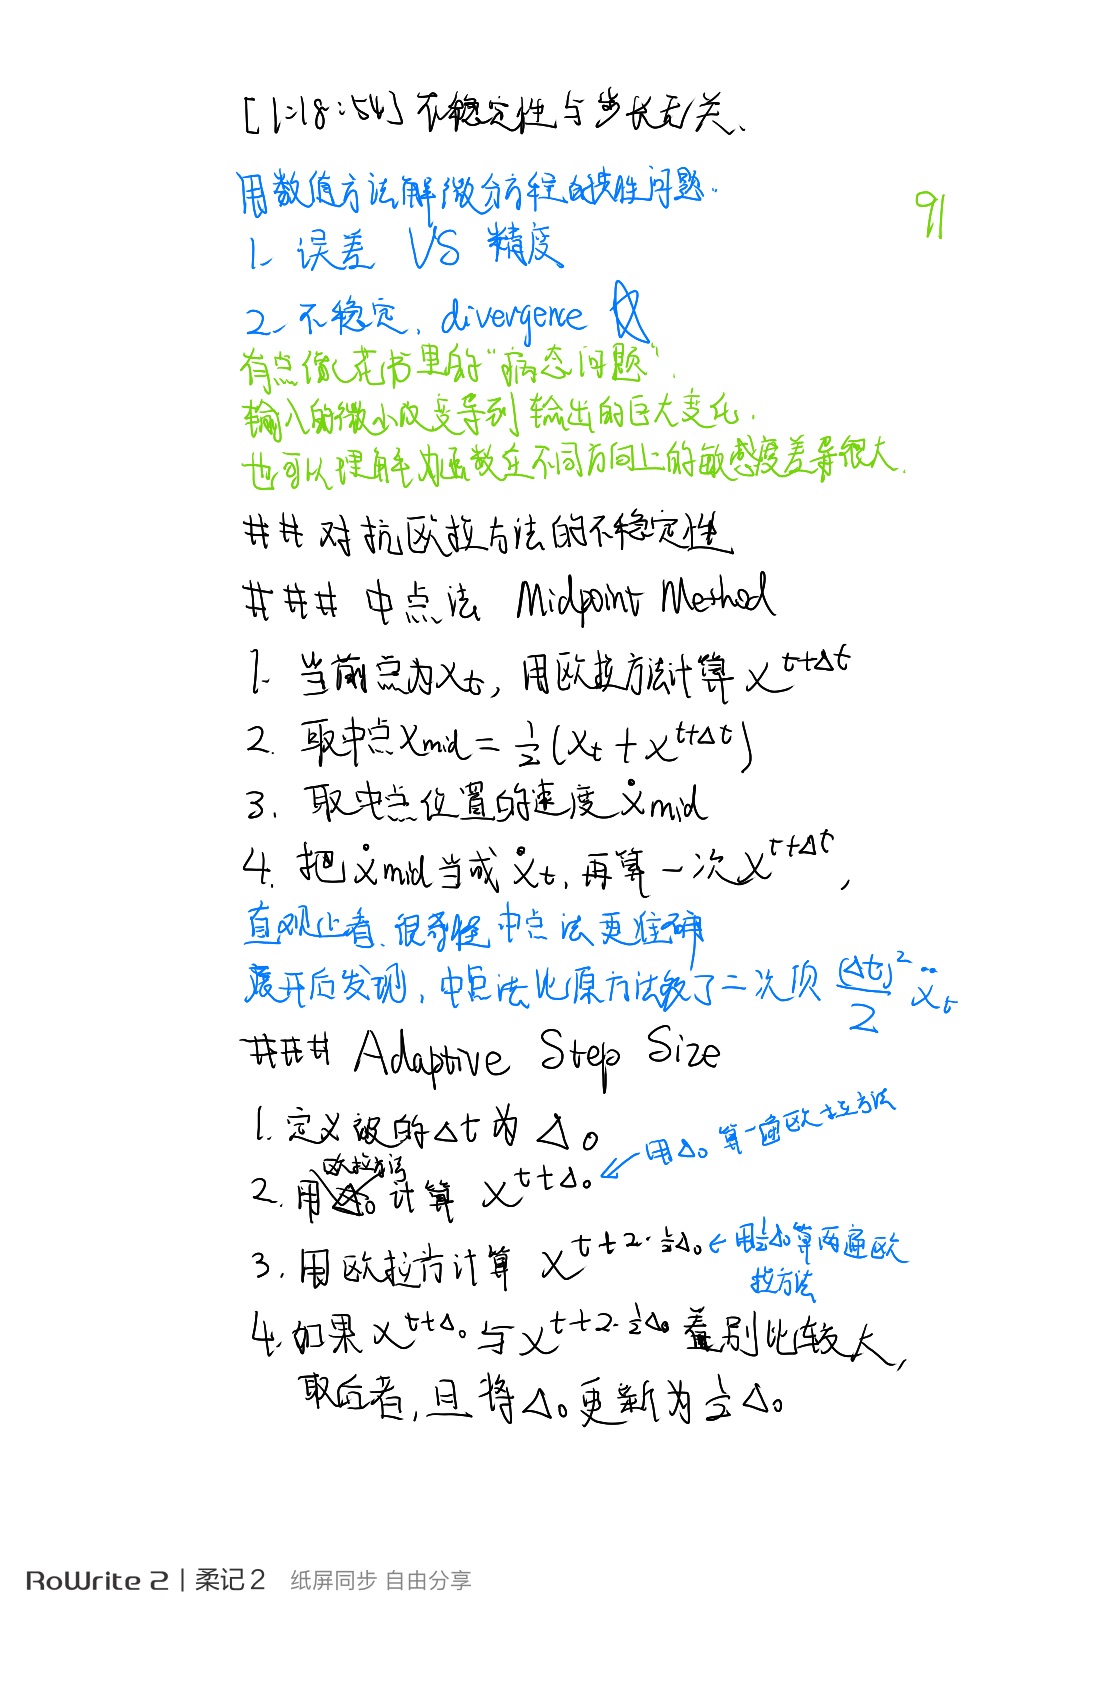 [1:18:54] 不稳定性与步长无关、
用数值方法解微分方程的共性问题.
91
1- 误差 VS 精度
2- 不稳定. divergence ☆
有点像花书里的“病态问题”.
输入的微小改变导到输出的巨大变化.
也可以理解为函数在不同方向上的敏感度差异很大.
## 对抗欧拉方法的不稳定性
### 中点法 Midpoint Method
1. 当前点为 xₜ, 用欧拉方法计算 x^{t+Δt}
2. 取中点 x_{mid} = ½(xₜ + x^{t+Δt})
3. 取中点位置的速度 ẋ_{mid}
4. 把 ẋ_{mid} 当成 ẋₜ. 再算一次 x^{t+Δt},
直观上看、很奇怪 中点法更准确
展开后发现, 中点法比原方法多了二次项 (Δt)²/2 ẍₜ
### Adaptive Step Size
1. 定义的Δt为 Δ₀
欧拉方法
2. 用计算 x^{t+Δ₀} ← 用Δ₀ 算一遍欧拉方法
3. 用欧拉方计算 x^{t+2·½Δ₀} ← 用½Δ₀算两遍欧
拉方法
4. 如果 x^{t+Δ₀} 与 x^{t+2·½Δ₀} 差别比较大,
取后者, 且将Δ₀更新为½Δ₀
RoWrite 2 | 柔记 2 纸屏同步 自由分享